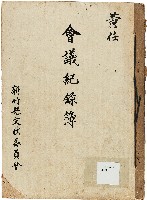 黄任
會議紀錄簿
新竹縣文獻委員會